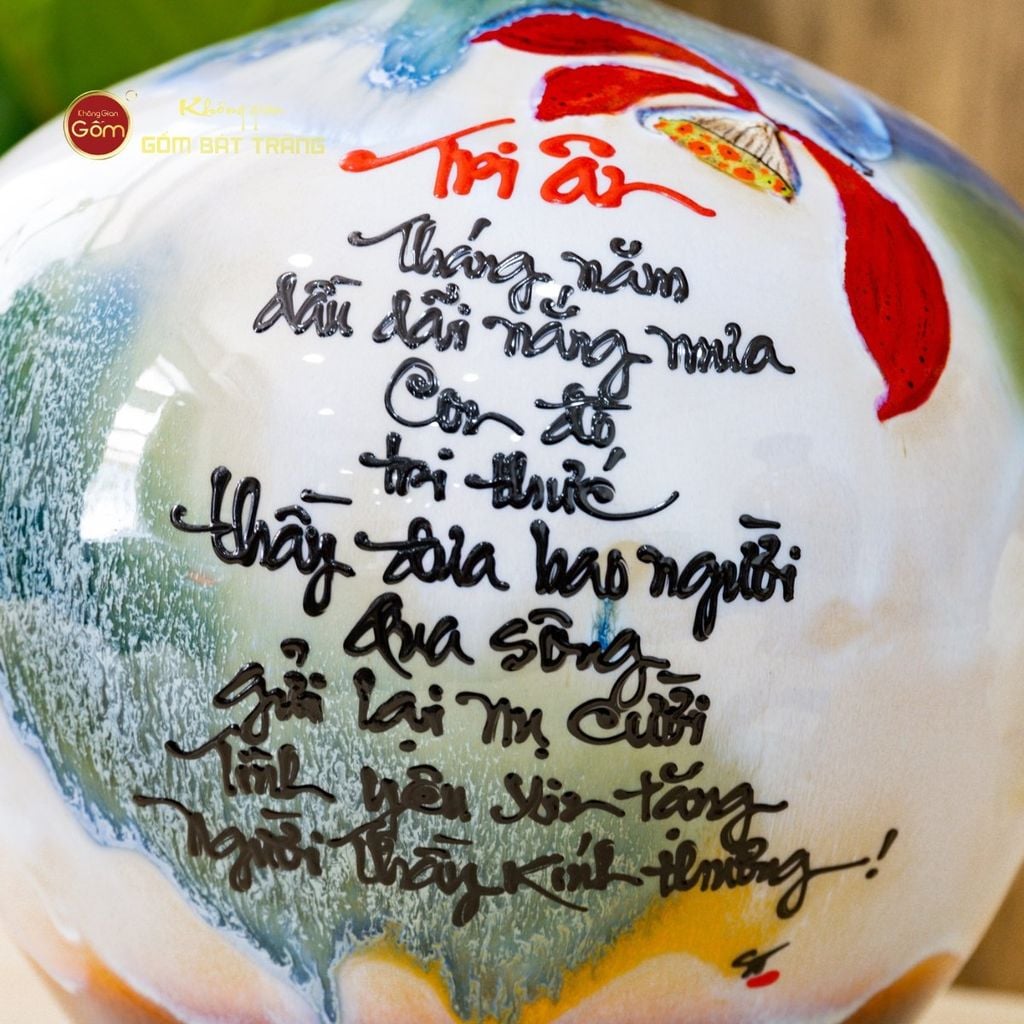 KhôngGian
Gốm
Không gian
GỐM BÁT TRÀNG
Tri ân
Tháng năm
dầu dãi nắng mưa
Con đò
tri thức
thầy đưa bao người
Qua sông
gửi lại nụ cười
Tình yêu xin tặng
Người Thầy Kính thương!